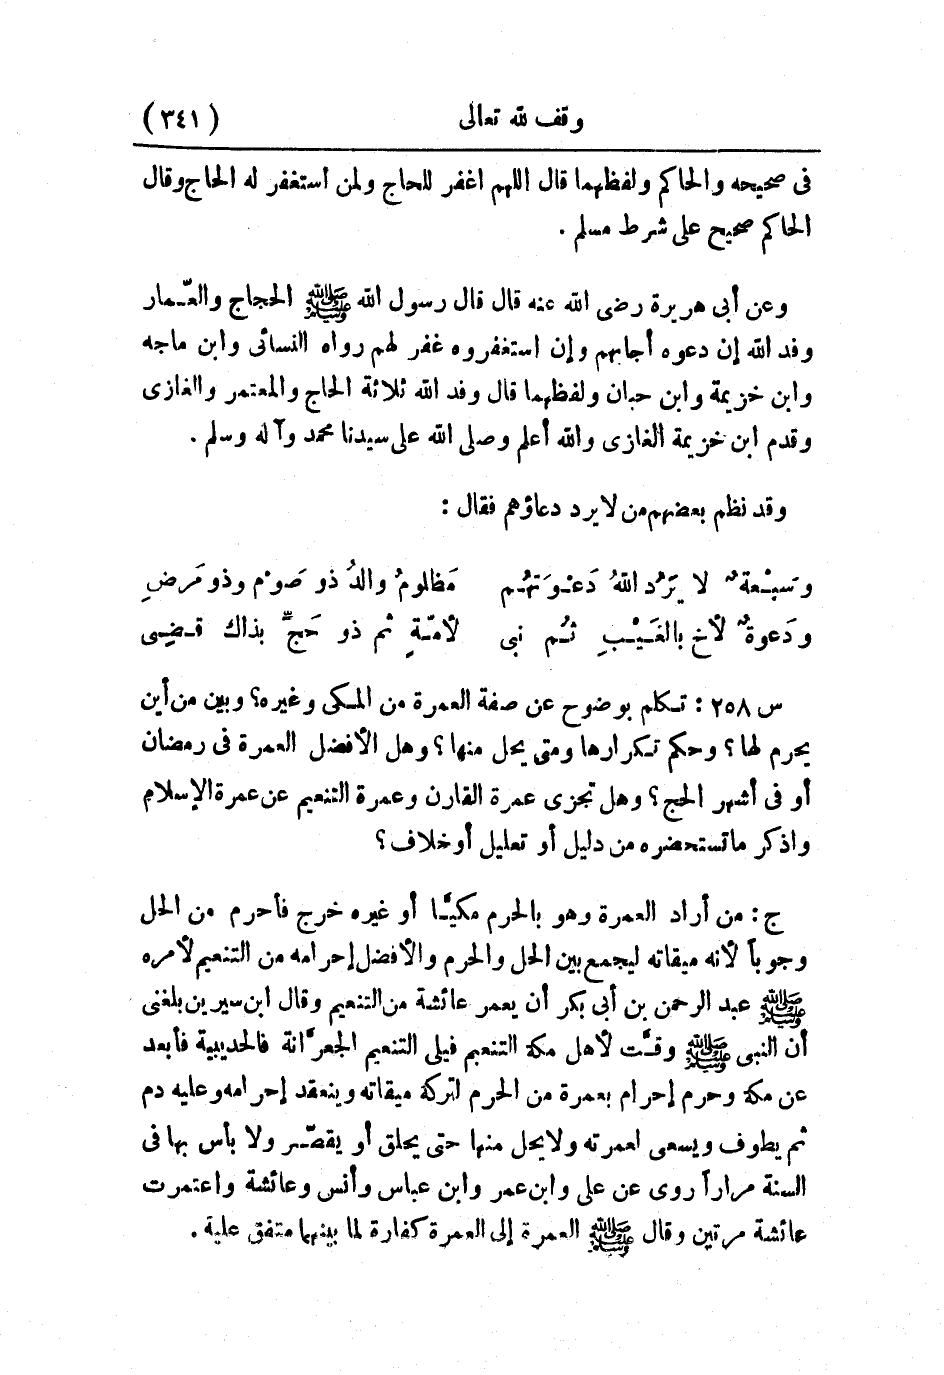 وقف لله تعالى (٣٤١)
فى صحيحه والحاكم ولفظهما قال اللهم اغفر للحاج ولمن استغفر له الحاج وقال
الحاكم صحيح على شرط مسلم .
وعن أبى هريرة رضى الله عنه قال قال رسول الله ﷺ الحجاج والعُّمار
وفد الله إن دعوه أجابهم وإن استغفروه غفر لهم رواه النسائى وابن ماجه
وابن خزيمة وابن حبان ولفظهما قال وفد الله ثلاثة الحاج والمعتمر والغازى
وقدم ابن خزيمة الغازى والله أعلم وصلى الله على سيدنا محمد وآله وسلم .
وقد نظم بعضهم من لا يرد دعاؤهم فقال :
وسَبْعة ٌ لا يَرُد اللهُ دَعْوَتَهُم مَظلومُ والدُ ذو صَومْ وذو مَرضِ
ودَعوة ٌ لأخ بالغَيْبِ ثُم نبى لأمّةٍ ثم ذو حَجٍّ بذاك قَضِى
س ٢٥٨ : تكلم بوضوح عن صفة العمرة من المكى وغيره؟ وبين من أين
يحرم لها ؟ وحكم تكرارها ومتى يحل منها ؟ وهل الأفضل العمرة فى رمضان
أو فى أشهر الحج ؟ وهل تجزى عمرة القارن وعمرة التنعيم عن عمرة الإسلام
واذكر ما تستحضره من دليل أو تعليل أو خلاف ؟
ج : من أراد العمرة وهو بالحرم مكيَّا أو غيره خرج فأحرم من الحل
وجوباً لأنه ميقاته ليجمع بين الحل والحرم والأفضل إحرامه من التنعيم لأمره
ﷺ عبد الرحمن بن أبى بكر أن يعمر عائشة من التنعيم وقال ابن سيرين بلغنى
أن النبى ﷺ وقَّت لأهل مكة التنعيم فيلى التنعيم الجعرَّانة فالحديبية فأبعد
عن مكة وحرم إحرام بعمرة من الحرم لتركة ميقاته وينعقد إحرامه وعليه دم
ثم يطوف ويسعى لعمرته ولا يحل منها حتى يحلق أو يقصّر ولا بأس بها فى
السنة مراراً روى عن على وابن عمر وابن عباس وأنس وعائشة واعتمرت
عائشة مرتين وقال ﷺ العمرة إلى العمرة كفارة لما بينهما متفق علية .